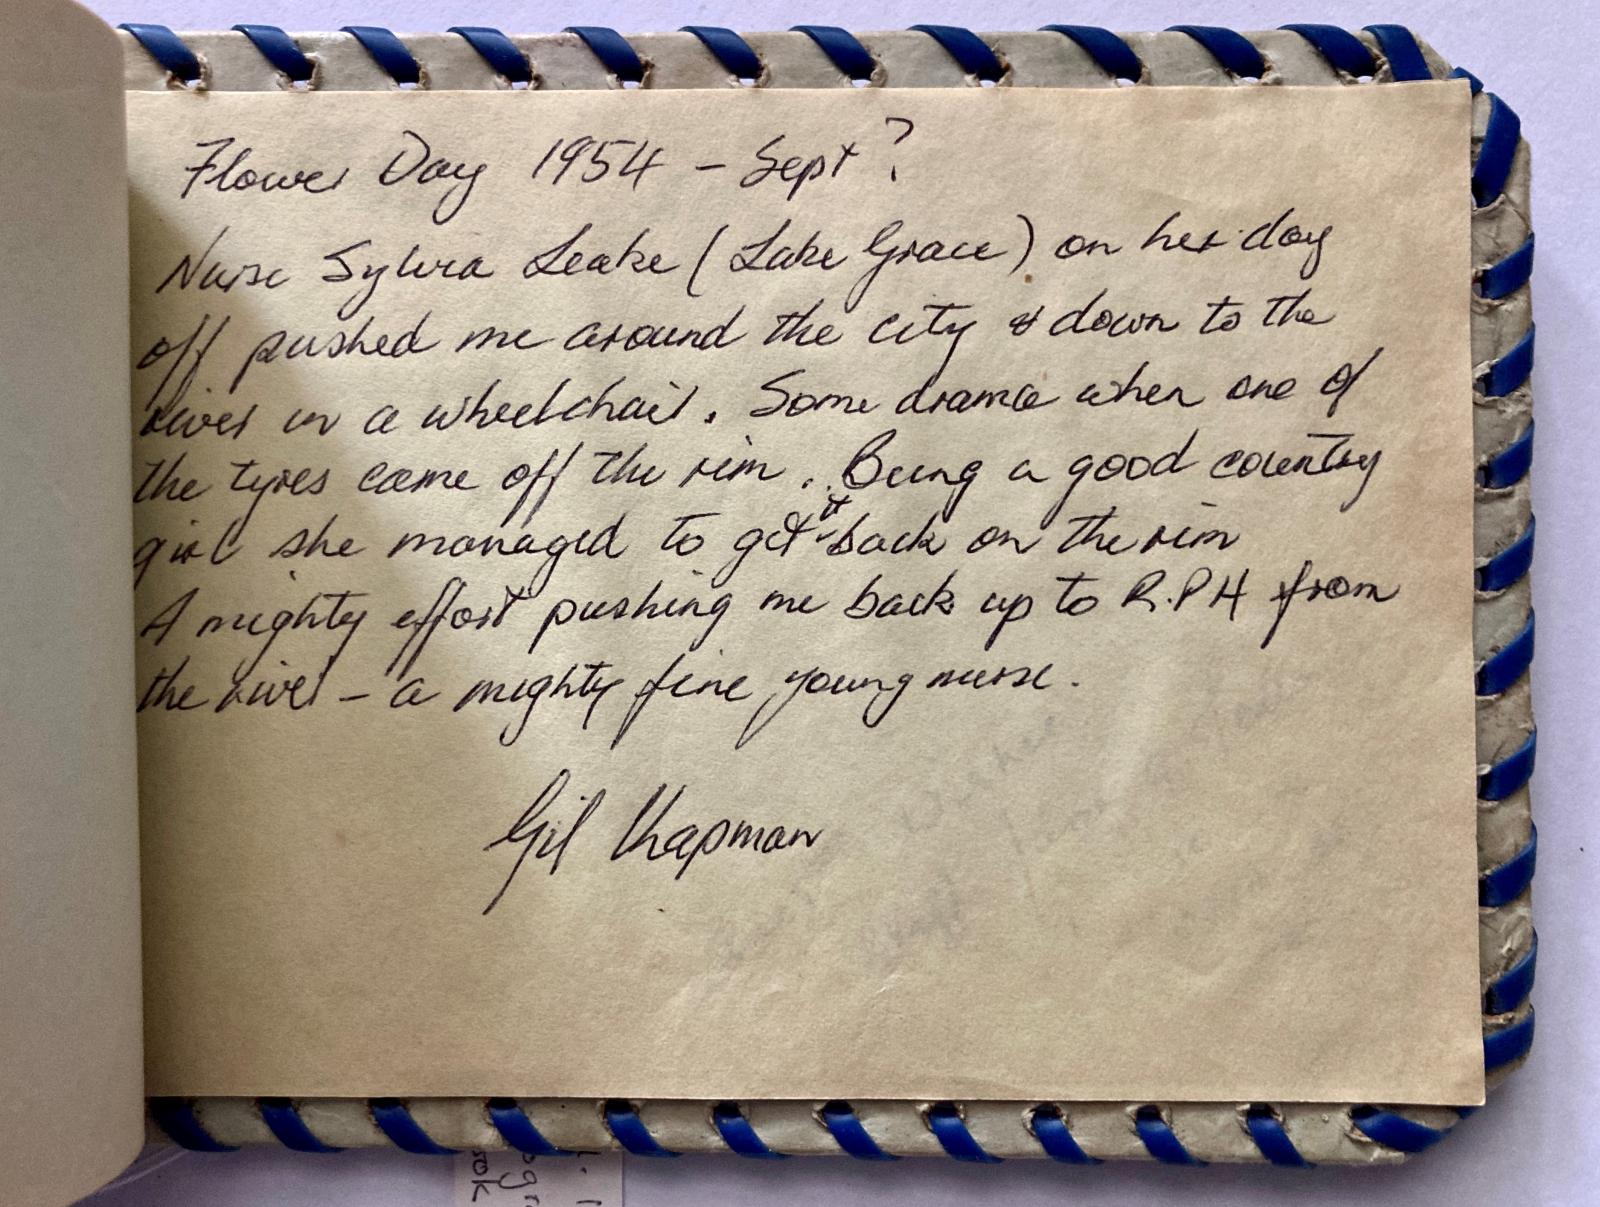 Flower Day 1954 - Sept ?
Nurse Sylvia Leake (Lake Grace) on her day
off pushed me around the city & down to the
river in a wheelchair. Some drama when one of
the tyres came off the rim. Being a good country
girl she managed to get it back on the rim
A mighty effort pushing me back up to R.P.H from
the river - a mighty fine young nurse.
Gil Chapman